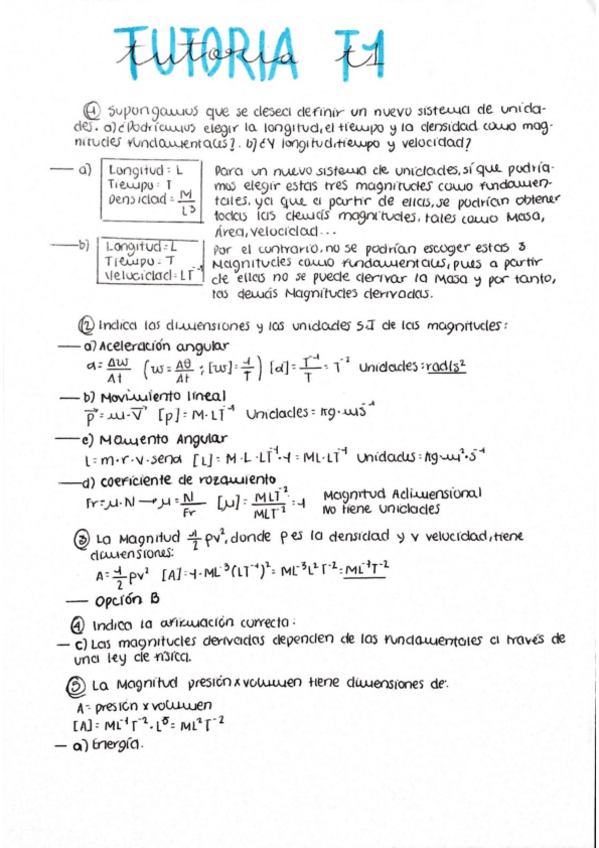 TUTORIA T1
tutoria t1
① Supongamos que se desea definir un nuevo sistema de unida-
des. a) ¿Podríamos elegir la longitud, el tiempo y la densidad como mag-
nitudes fundamentales?. b) ¿Y longitud, tiempo y velocidad?
a) Longitud: L
Tiempo: T
Densidad = M/L³
Para un nuevo sistema de unidades, sí que podría-
mos elegir estas tres magnitudes como fundamen-
tales, ya que a partir de ellas, se podrían obtener
todas las demás magnitudes, tales como Masa,
Área, velocidad...
b) Longitud = L
Tiempo: T
Velocidad: LT⁻¹
Por el contrario, no se podrían escoger estas 3
Magnitudes como fundamentales, pues a partir
de ellas no se puede derivar la Masa y por tanto,
las demás Magnitudes derivadas.
② Indica las dimensiones y las unidades S.I de las magnitudes:
a) Aceleración angular
α = Δw/Δt (w = Δθ/Δt ; [w] = 1/T) [α] = T⁻¹/T = T⁻² Unidades: rad/s²
b) Movimiento lineal
p⃗ = m·v⃗ [p] = M·LT⁻¹ Unidades = kg·ms⁻¹
c) Momento Angular
L = m·r·v·senα [L] = M·L·LT⁻¹·1 = ML·LT⁻¹ Unidades: kg·m²·s⁻¹
d) Coeficiente de rozamiento
Fr = μ·N → μ = N/Fr [μ] = MLT⁻²/MLT⁻² = 1 Magnitud Adimensional
No tiene unidades
③ La Magnitud 1/2 ρv², donde ρ es la densidad y v velocidad, tiene
dimensiones:
A = 1/2 ρv² [A] = 1·ML⁻³(LT⁻¹)² = ML⁻³L²T⁻² = ML⁻¹T⁻²
Opción B
④ Indica la afirmación correcta:
c) Las magnitudes derivadas dependen de las fundamentales a través de
una ley de física.
⑤ La Magnitud presión x volumen tiene dimensiones de:
A = presión x volumen
[A] = ML⁻¹T⁻²·L³ = ML²T⁻²
a) Energía.